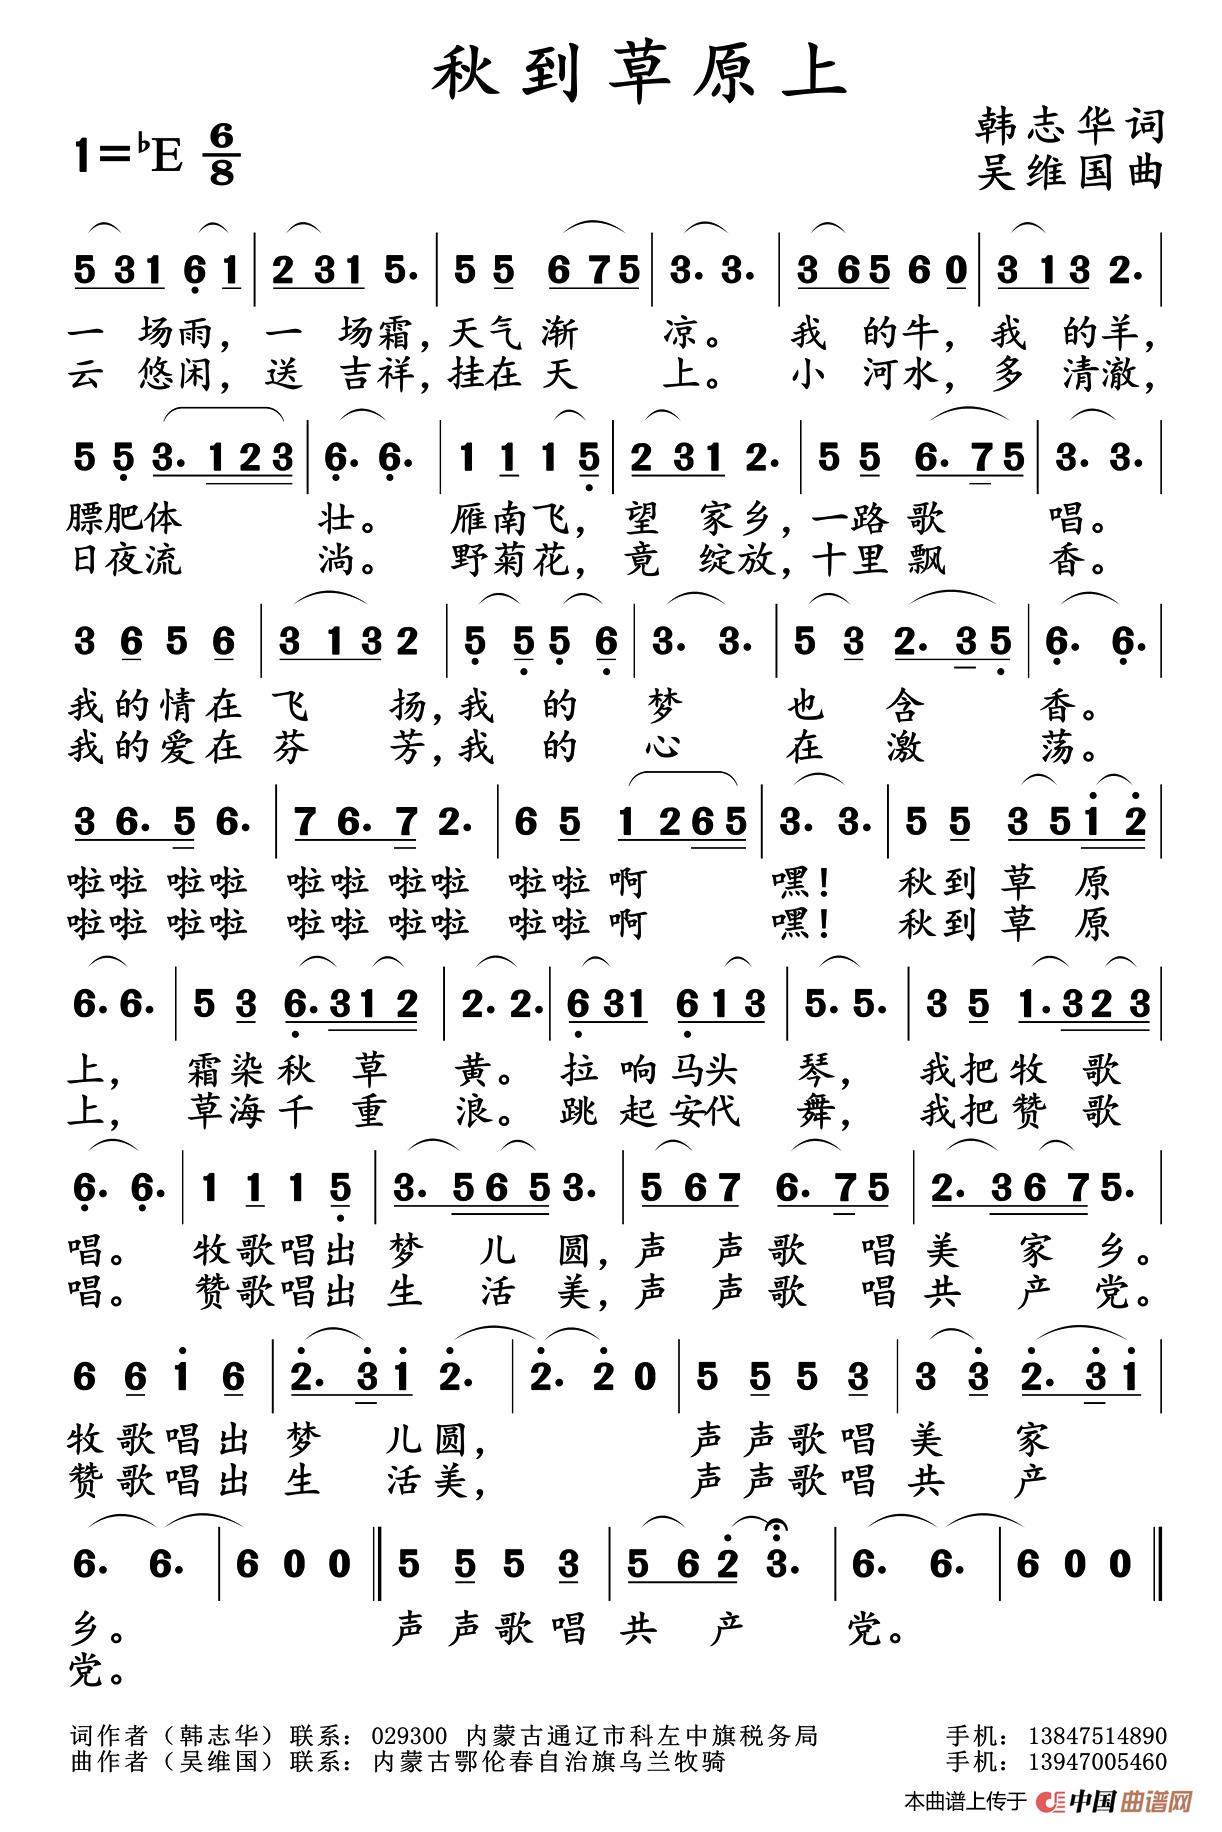 秋到草原上
韩志华词
1=♭E 6/8
吴维国曲
5 3 1 6 1 | 2 3 1 5. | 5 5 6 7 5 | 3. 3. | 3 6 5 6 0 | 3 1 3 2. |
一 场雨, 一 场霜, 天气 渐 凉。 我 的牛, 我 的羊,
云 悠闲, 送 吉祥, 挂在 天 上。 小 河水, 多 清澈,
5 5 3. 1 2 3 | 6. 6. | 1 1 1 5 | 2 3 1 2. | 5 5 6. 7 5 | 3. 3. |
膘肥体 壮。 雁南飞, 望 家乡, 一路歌 唱。
日夜流 淌。 野菊花, 竟 绽放, 十里飘 香。
3 6 5 6 | 3 1 3 2 | 5 5 5 6 | 3. 3. | 5 3 2. 3 5 | 6. 6. |
我的情在 飞 扬, 我 的 梦 也 含 香。
我的爱在 芬 芳, 我 的 心 在 激 荡。
3 6. 5 6. | 7 6. 7 2. | 6 5 1 2 6 5 | 3. 3. | 5 5 3 5 1 2 |
啦啦 啦啦 啦啦 啦啦 啦啦 啊 嘿! 秋到 草 原
啦啦 啦啦 啦啦 啦啦 啦啦 啊 嘿! 秋到 草 原
6. 6. | 5 3 6. 3 1 2 | 2. 2. | 6 3 1 6 1 3 | 5. 5. | 3 5 1. 3 2 3 |
上, 霜染秋 草 黄。 拉 响马头 琴, 我把牧 歌
上, 草海千 重 浪。 跳 起安代 舞, 我把赞 歌
6. 6. | 1 1 1 5 | 3. 5 6 5 3. | 5 6 7 6. 7 5 | 2. 3 6 7 5. |
唱。 牧歌唱出 梦 儿 圆, 声 声 歌 唱 美 家 乡。
唱。 赞歌唱出 生 活 美, 声 声 歌 唱 共 产 党。
6 6 1 6 | 2. 3 1 2. | 2. 2 0 | 5 5 5 3 | 3 3 2. 3 1 |
牧歌唱出 梦 儿圆, 声声歌唱 美 家
赞歌唱出 生 活美, 声声歌唱 共 产
6. 6. | 6 0 0 ‖ 5 5 5 3 | 5 6 2 3. | 6. 6. | 6 0 0 ‖
乡。 声声歌唱 共 产 党。
党。
词作者（韩志华）联系：029300 内蒙古通辽市科左中旗税务局 手机：13847514890
曲作者（吴维国）联系：内蒙古鄂伦春自治旗乌兰牧骑 手机：13947005460
本曲谱上传于 中国曲谱网